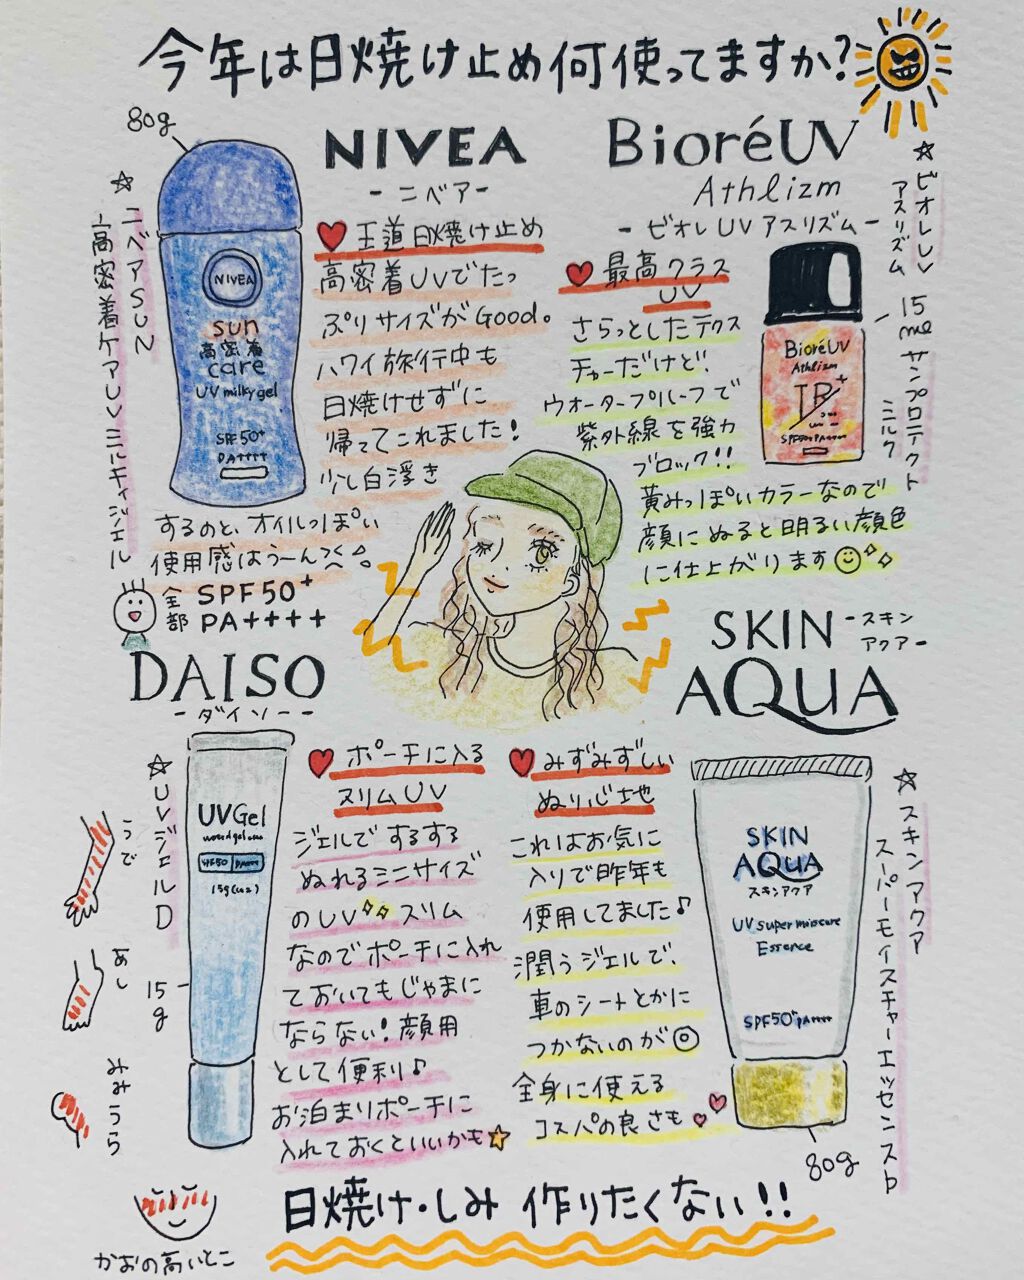 今年は日焼け止め何使ってますか?
80g
NIVEA
-ニベア-
☆ニベアSUN
高密着ケアUVミルキィジェル
NIVEA
sun
高密着
care
UV milky gel
SPF50+
PA++++
♥王道日焼け止め
高密着UVでたっ
ぷりサイズがGood。
ハワイ旅行中も
日焼けせずに
帰ってこれました!
少し白浮き
するのと、オイルっぽい
使用感はう〜ん
全部
SPF50+
PA++++
BioréUV
Athlizm
-ビオレUVアスリズム-
☆ビオレUV
アスリズム
サンプロテクト
ミルク
15ml
BioréUV
Athlizm
SPF50+PA++++
♥最高クラス
UV
さらっとしたテクス
チャーだけど、
ウォータープルーフで
紫外線を強力
ブロック!!
黄みっぽいカラーなので
顔にぬると明るい顔色
に仕上がります
DAISO
-ダイソー-
☆UVジェルD
UVGel
SPF50 PA+++
15g
15g
♥ポーチに入る
スリムUV
ジェルでするする
ぬれるミニサイズ
のUV スリム
なのでポーチに入れ
ておいてもじゃまに
ならない!顔用
として便利♪
お泊まりポーチに
入れておくといいかも☆
うで
あし
みみうら
かおの高いとこ
SKIN
AQUA
-スキン
アクア-
☆スキンアクア
スーパーモイスチャーエッセンスb
SKIN
AQUA
スキンアクア
UV super moisture
Essence
SPF50+PA++++
80g
♥みずみずしい
ぬり心地
これはお気に
入りで昨年も
使用してました♪
潤うジェルで、
車のシートとかに
つかないのが◎
全身に使える
コスパの良さも
日焼け・しみ 作りたくない!!